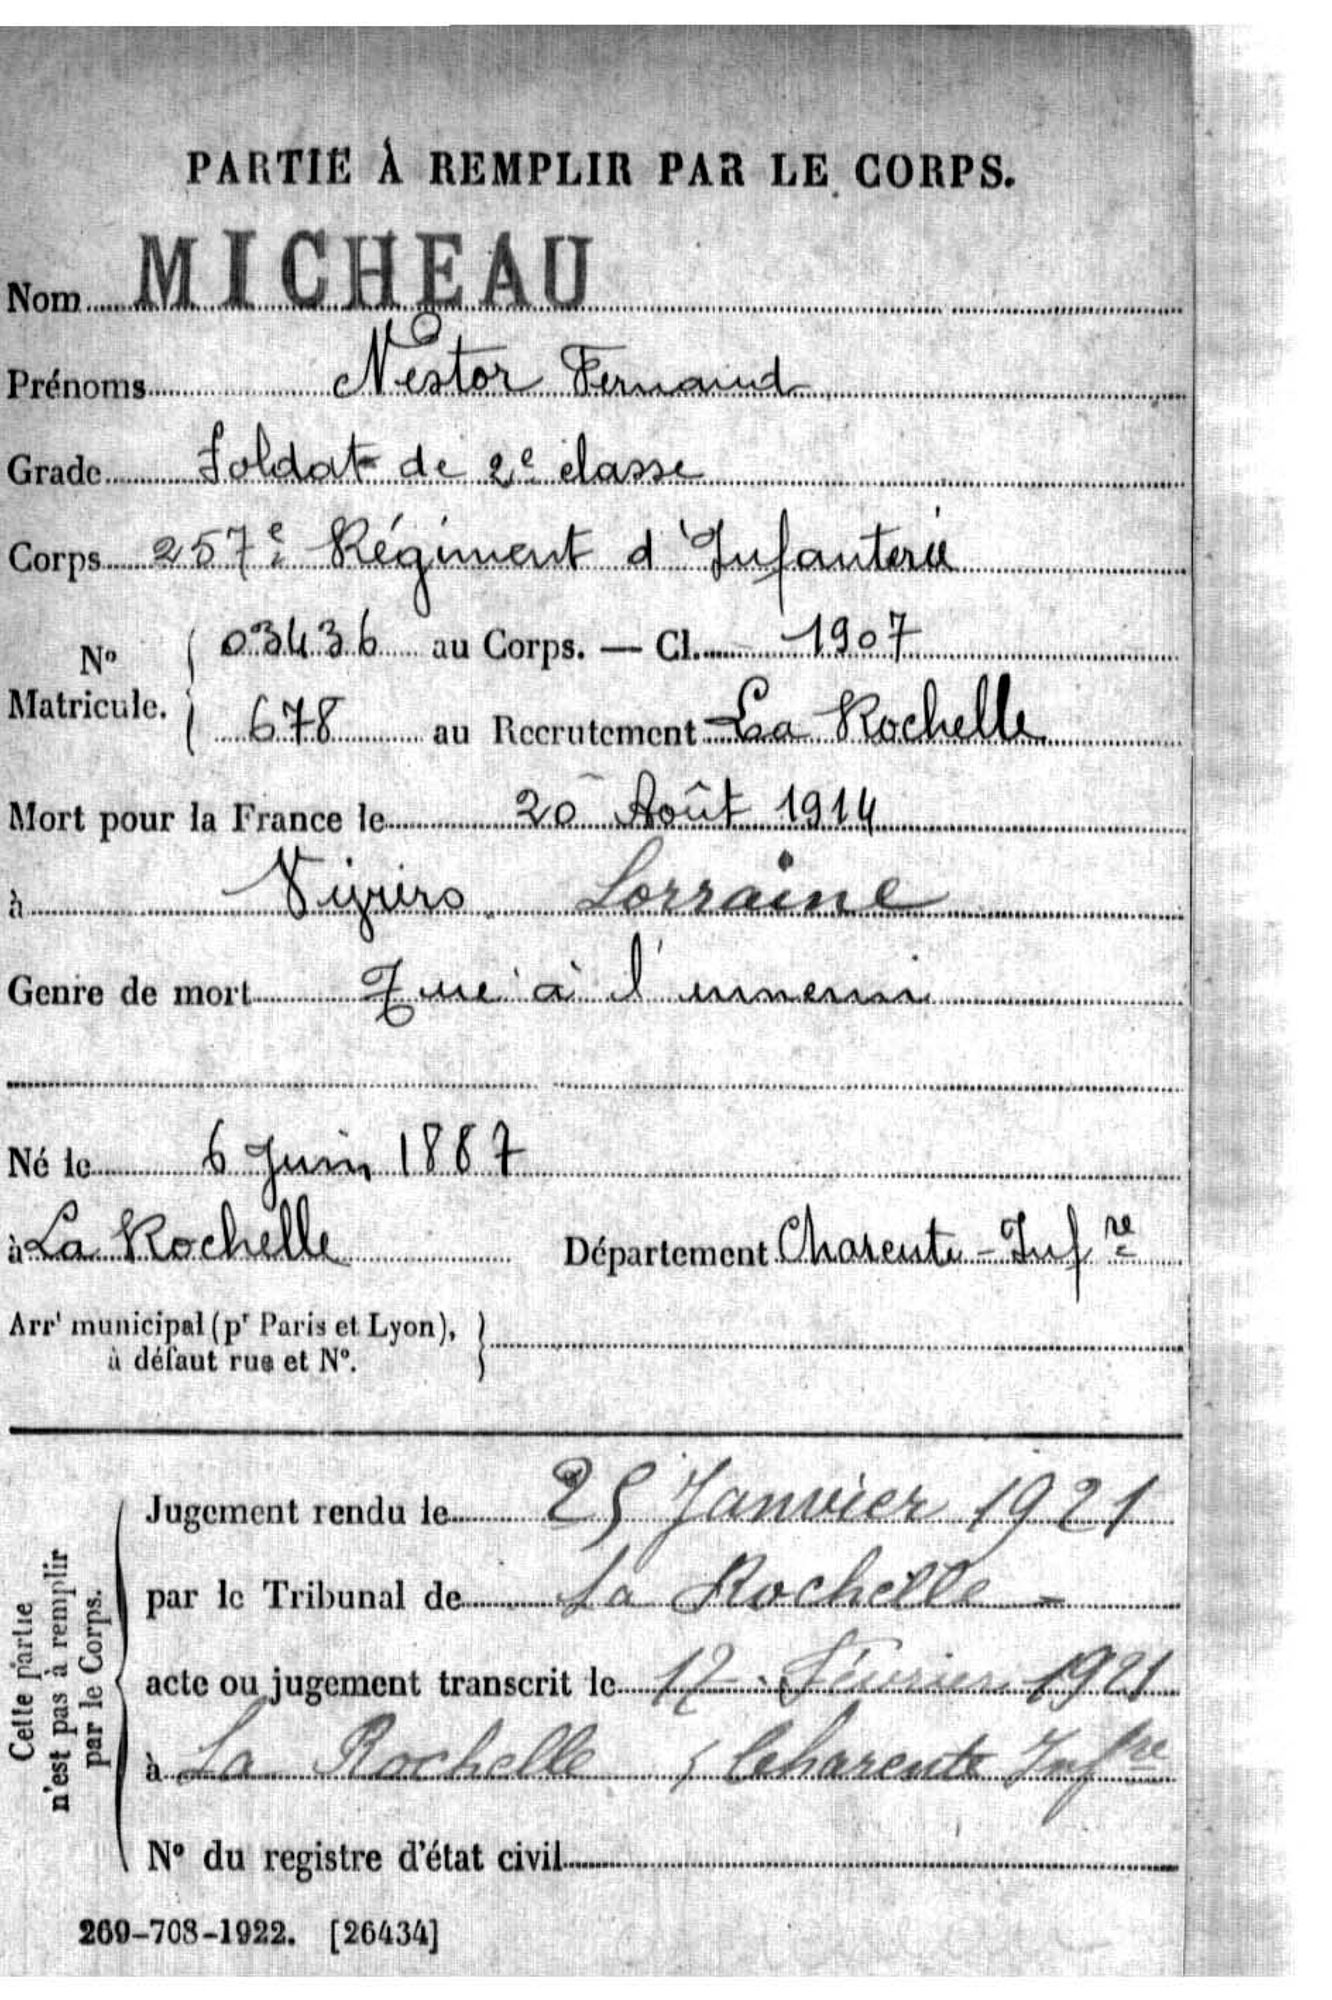 PARTIE À REMPLIR PAR LE CORPS.
Nom MICHEAU
Prénoms Nestor Fernand
Grade Soldat de 2e classe
Corps 257e Régiment d'Infanterie
No Matricule. 03436 au Corps. — Cl. 1907
678 au Recrutement La Rochelle
Mort pour la France le 20 Août 1914
à Lorraine
Genre de mort Tué à l'ennemi
Né le 6 Juin 1887
à La Rochelle Département Charente-Infre
Arrt municipal (pr Paris et Lyon),
à défaut rue et No.
Cette partie
n'est pas à remplir
par le Corps.
Jugement rendu le 25 Janvier 1921
par le Tribunal de La Rochelle -
acte ou jugement transcrit le 12 Février 1921
à La Rochelle Charente Infre
No du registre d'état civil
269-708-1922. [26434]